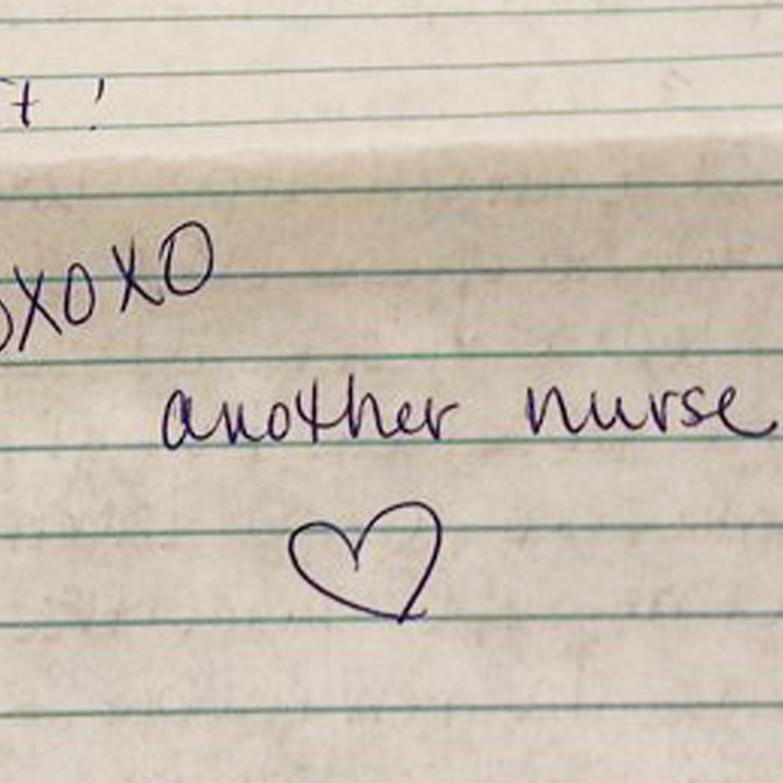 t!
oxoxo
another nurse